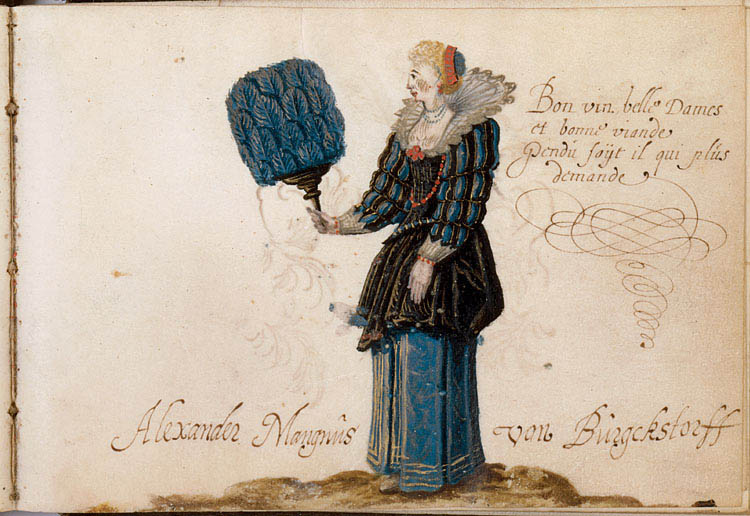 Bon vin, belle Dames
et bonne viande
Pendú soÿt il qui plús
demande
Alexander Mangnús von Búrgckstorff